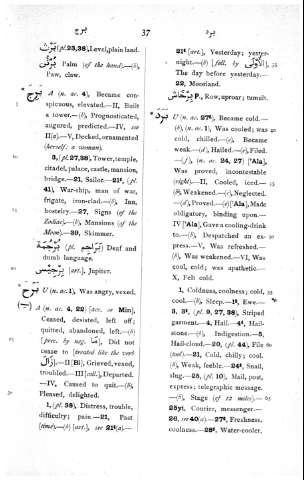 برج
37
برد
بَرْث (pl. 23, 38), Level, plain land.
بُرْثُن Palm (of the hand).—(b),
Paw, claw.
بَرَجَ A (n. ac. 4), Became con-
spicuous, elevated.—II, Built
a tower.—(b), Prognosticated,
augured, predicted.—IV, see
II(a).—V, Decked, ornamented
(herself: a woman).
3, (pl. 27, 38), Tower, temple,
citadel, palace, castle, mansion,
bridge.—21, Sailor.—21t, (pl.
41), War-ship, man of war,
frigate, iron-clad.—(b), Inn,
hostelry.—27, Signs (of the
Zodiac).—(b), Mansions (of the
Moon).—39, Skimmer.
بُرْجُمَة (pl. بَرَاجِم) Deaf and
dumb language.
بِرْجِيس [art.], Jupiter.
بَرَحَ U (n. ac. 1), Was angry, vexed.
A (n. ac. 4, 22) [acc. or Min],
Ceased, desisted, left off;
quitted, abandoned, left.—(b)
[prec. by neg. مَا], Did not
cease to [treated like the verb
زَالَ].—II [Bi], Grieved, vexed,
troubled.—III [coll.], Departed.
—IV, Caused to quit.—(b),
Pleased, delighted.
1, (pl. 38), Distress, trouble,
difficulty; pain.—21, Past
(time).—(b) [art.], see 21t(a).—
21t [art.], Yesterday; yester-
night.—(b) [foll. by الأُولَى],
The day before yesterday.—
22, Moorland.
بِرْخَاش P., Row, uproar; tumult.
بَرَدَ U (n. ac. 27t), Became cold.—
(b), (n. ac. 1), Was cooled; was
cold, chilled.—(c), Became
weak.—(d), Hailed.—(e), Filed.
—(f), (n. ac. 24, 27) ['Ala],
Was proved, incontestable
(right).—II, Cooled, iced.—
(b), Weakened.—(c), Neglected.
—(d), Proved.—(e) ['Ala], Made
obligatory, binding upon.—
IV ['Ala], Gave a cooling-drink
to.—(b), Despatched an ex-
press.—V, Was refreshed.—
(b), Was weakened.—VI, Was
cool, cold; was apathetic.—
X, Felt cold.
1, Coldness, coolness; cold,
cool.—(b), Sleep.—1t, Ewe.—
3, 3t, (pl. 9, 27, 38), Striped
garment.—4, Hail.—4t, Hail-
stone.—(b), Indigestion.—5,
Hail-cloud.—20, (pl. 44), File
(tool).—21, Cold, chilly; cool.
(b), Weak, feeble.—24t, Snail,
slug.—25, (pl. 10), Mail, post,
express; telegraphic message.
—(b), Stage (of 12 miles).—
25yi, Courier, messenger.—
26, see 40(a).—27t, Freshness,
coolness.—28t, Water-cooler,